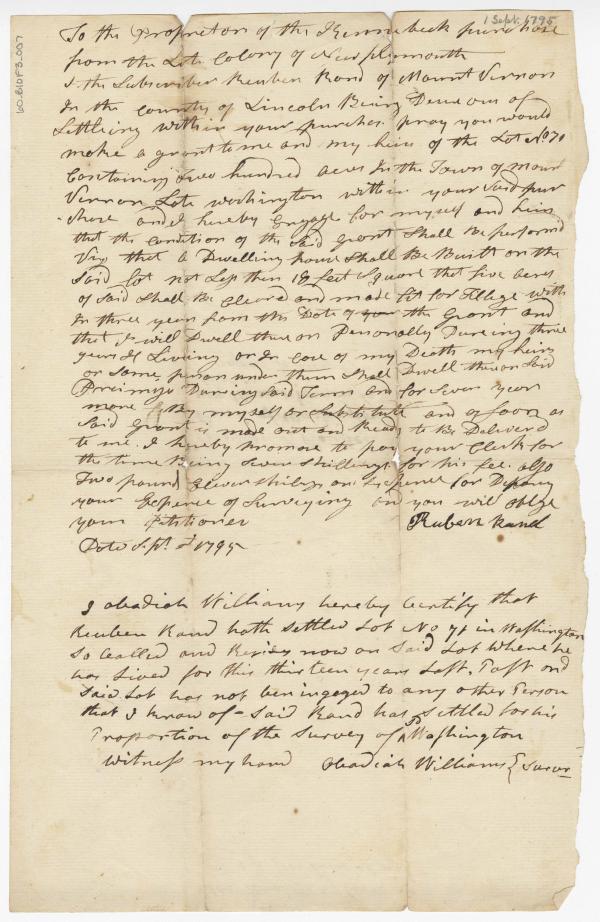 1 Sept. 1795
60.B1DF3.007
To the Proprietors of the Kennebeck purchase
from the Late Colony of New plymouth
I the Subscriber Reuben Rand of Mount Vernon
In the County of Lincoln Being Desirous of
Settleing within your purchas pray you would
make a grant to me and my heirs of the Lot No 71
Containing two hundred acres In the Town of moun
Vernon Late washington within your said pur
chase and I hereby Engage for myself and heirs
that the condition of the said grant Shall Be performd
Viz that a Dwelling house Shall Be Built on the
Said lot not Less then 18 feet Square that five acres
of Said Shall Be Cleard and made fit for Tillege with
In three years from the Date of the Grant and
that I will Dwell there on Personally Dureing three
years If Liveing or In Case of my Death my heirs
or Some person under them Shall Dwell there on Said
Dureing Said Term and for Seven year
more By myself or Substitute and as soon as
Said grant is made out and Ready to Be Deliverd
to me I hereby promose to pay your Clerk for
the time Being Seven Shillings for his fee also
Two pound Eleven Shilings an for
your Expence of Surveying and you will oblge
your Petitioner Ruben Rand
Date Sepr. 1 1795
I obadiah Williams hereby Certify that
Reuben Rand hath Settled Lot No 71 in Washington
So Called and now on Said Lot where he
has Lived for this thirteen years Last Past and
Said Lot has not ben ingaged to any other Person
that I know of - Said Rand has Settled for his
Proportion of the Survey of Washington
Witness my hand obadiah Williams